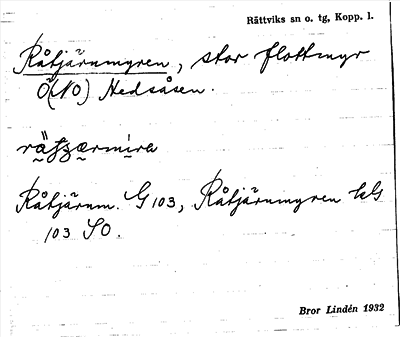 Rättviks sn o. tg, Kopp. l.
Råtjärnmyren, stor flottmyr
Ö(NO) Hedsåsen.
Råtjärnm. G 103, Råtjärnmyren
103 SO.
Bror Lindén 1932